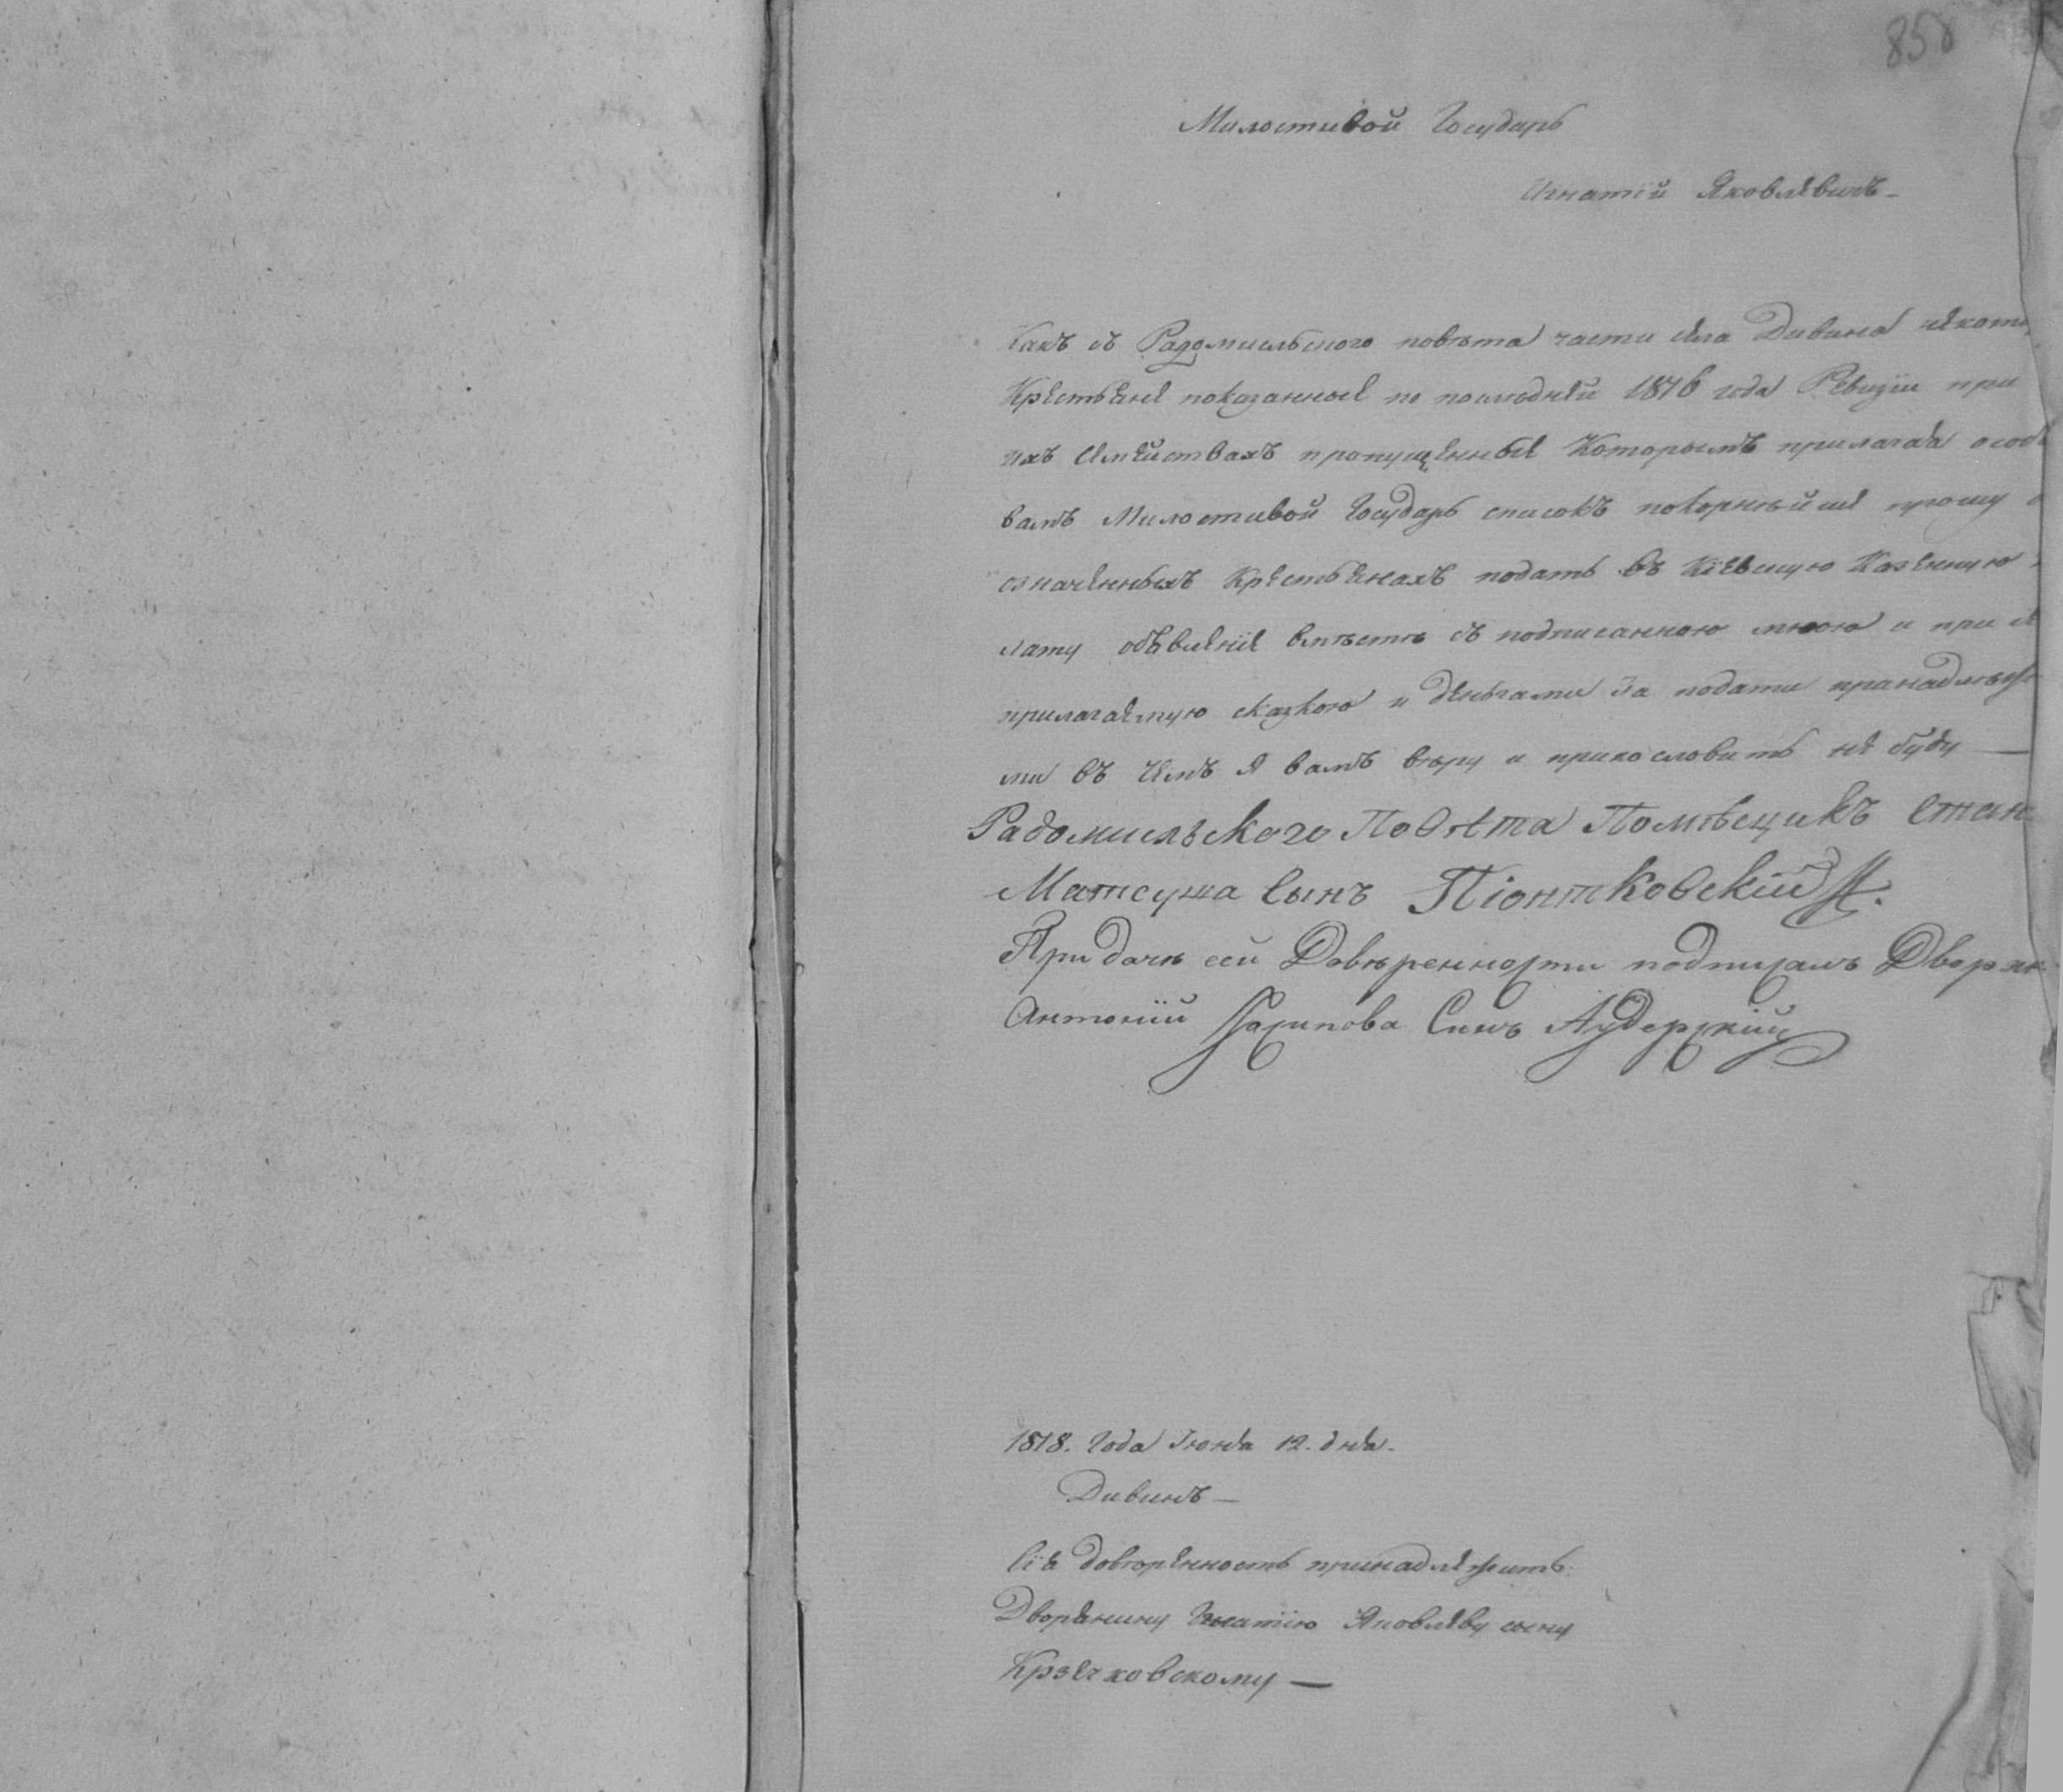 858
Милостивой Государь
Игнатій Яковлевичъ
Какъ съ Радомысльского повѣта части села Дивина некото
Крестьяне показанные по последней 1816 года Ревизіи при
ихъ семействахъ пропущенные Которымъ прилагая особ
вамъ Милостивой Государь списокъ покорнѣйше прошу о
означенныхъ Крестьянахъ подать въ Кіевскую Казенную
лату объявленіе вместѣ съ подписанною мною и при се
прилагаемую сказкою и деньгами за подати принадлеж
ми въ чемъ я вамъ вѣру и прикословить не буду —
Радомысльского Повѣта Помѣщикъ Стан
Матеуша Сынъ Піонтковскій
При дачи сей Довѣренности подписалъ Дворян
Антоній Сынъ
1818. Года Іюня 12. дня.
Дивинъ —
Сія довѣренность принадлежитъ
Дворянину Игнатію Яковлеву сыну
Крзечковскому —